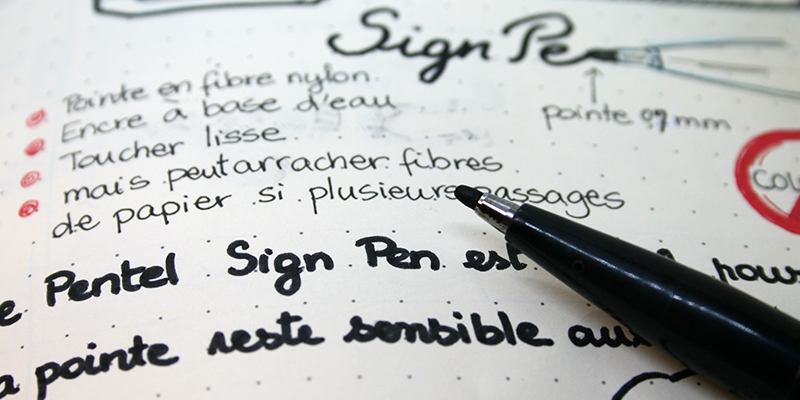 Sign Pen
pointe 0,7 mm
Pointe en fibre nylon
Encre à base d'eau
Toucher lisse
mais peut arracher fibres
de papier si plusieurs passages
COU
e Pentel Sign Pen est
a pointe reste sensible aux